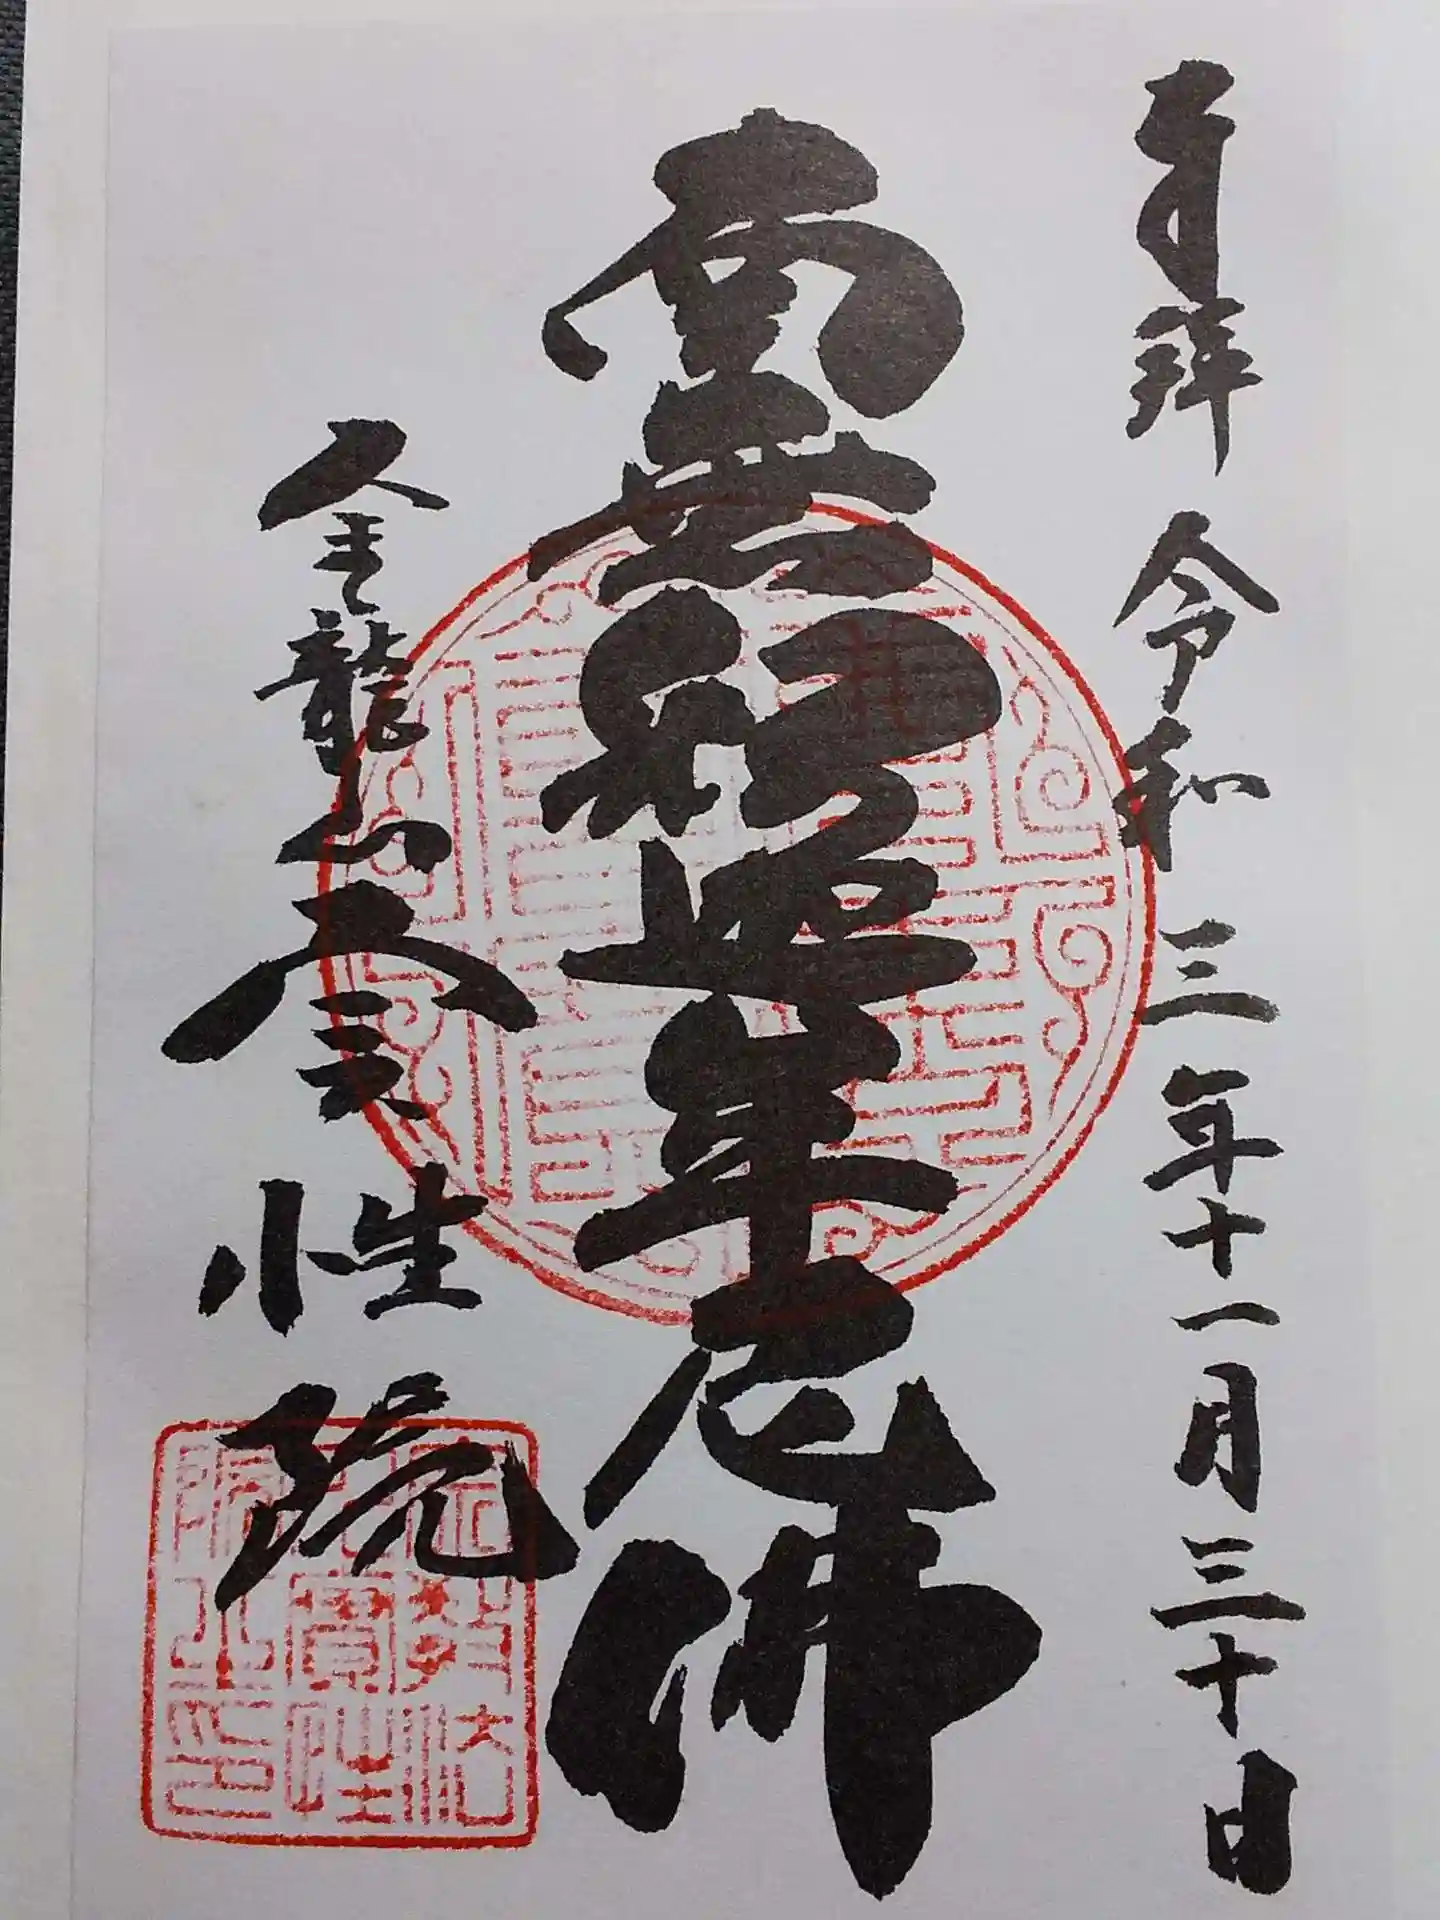 奉拝 令和三年十一月三十日
南無釋迦牟尼佛
金龍山 實性院